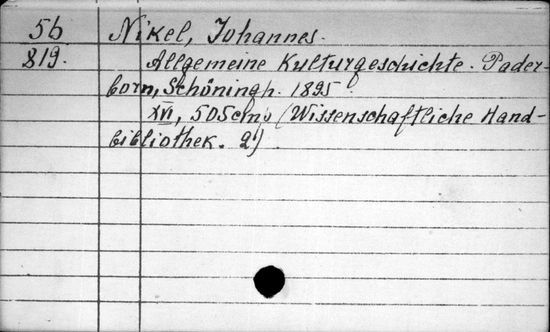 56 Nikel, Johannes.
819. Allgemeine Kulturgeschichte. Pader-
born, Schöningh. 1895.
XVI, 505 (Wissenschaftliche Hand-
bibliothek. 2)